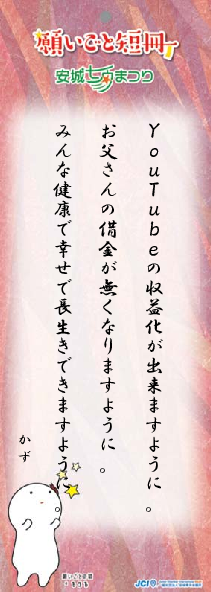 願いごと短冊
安城七夕まつり
YouTubeの収益化が出来ますように。
お父さんの借金が無くなりますように。
みんな健康で幸せで長生きできますように。
かず
願いごと短冊
JCI